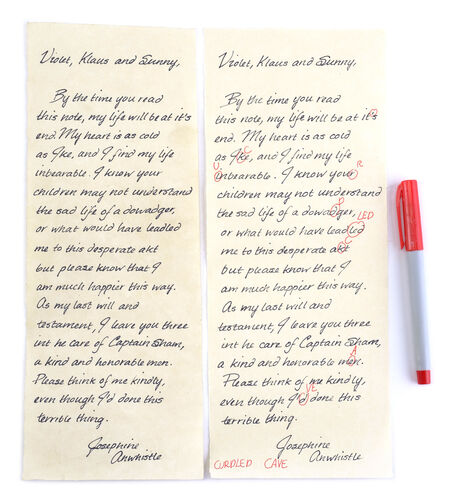 Violet, Klaus and Sunny,
By the time you read
this note, my life will be at it's
end. My heart is as cold
as Ike, and I find my life
inbearable. I know your
children may not understand
the sad life of a dowadger,
or what would have leadled
me to this desperate akt
but please know that I
am much happier this way.
As my last will and
testament, I leave you three
int he care of Captain Sham,
a kind and honorable men.
Please think of me kindly,
even though I'd done this
terrible thing.
Josephine
Anwhistle
Violet, Klaus and Sunny,
By the time you read
this note, my life will be at it's
end. My heart is as cold
C
as Ike, and I find my life
U
inbearable. I know your
R
children may not understand
the sad life of a dowadger,
LED
or what would have leadled
C
me to this desperate akt
but please know that I
am much happier this way.
As my last will and
testament, I leave you three
int he care of Captain Sham,
a kind and honorable men.
A
Please think of me kindly,
VE
even though I'd done this
terrible thing.
Josephine
Anwhistle
CURDLED CAVE